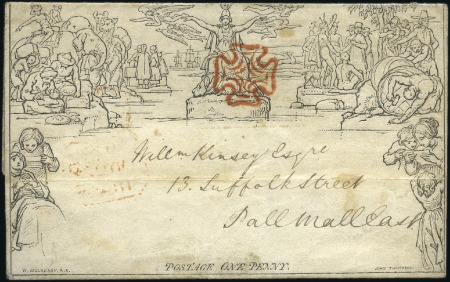 Willm Kinsey Esqre
13. Suffolk Street
Pall Mall East
W. MULREADY. R.A.
POSTAGE ONE PENNY.
JOHN THOMPSON